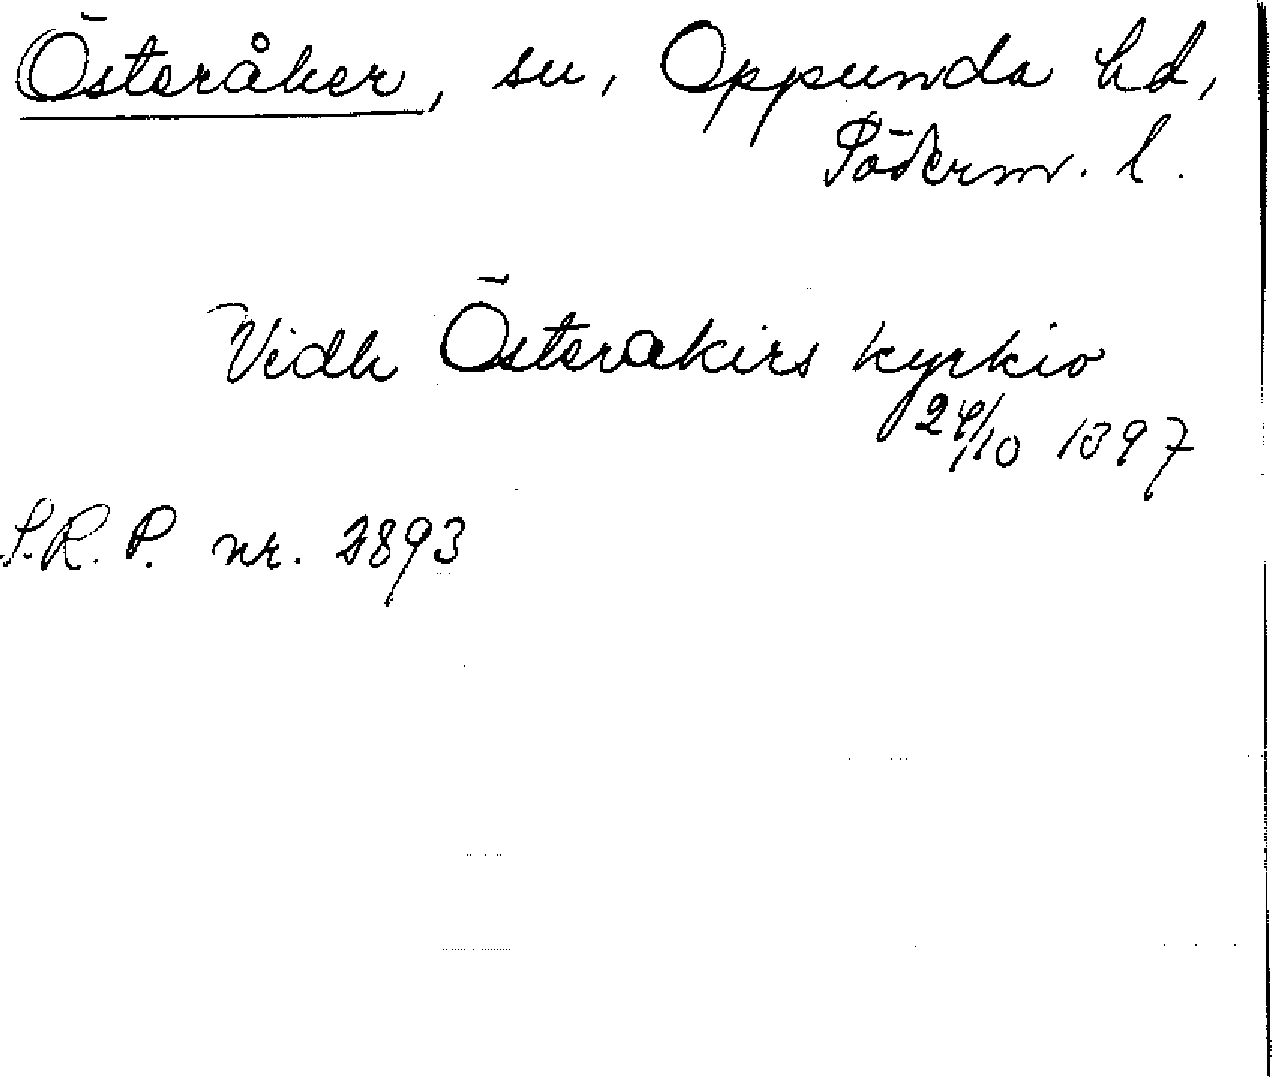 Österåker, sn, Oppunda hd,
Söderm. l.
Vidh Österakirs kyrkio
24/10 1397
S.R.P. nr. 2893